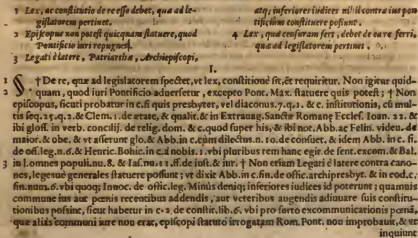 1 Lex, ac constitutio de re esse debet, quæ ad legislatorem pertinet.
2 Episcopus non potest quicquam statuere, quod Pontificio iuri repugnet.
3 Legati à latere, Patriarcha, Archiepiscopi,
atq; inferiores iudices nihil contra ius pontificium constituere possunt.
4 Lex, quæ censuram fert, debet de ea re ferri, quæ ad legislatorem pertinet.
I.
1 † De re, quæ ad legislatorem spectet, vt lex, constitióne sit, & requiritur. Non igitur quid-
2 quam, quod iuri Pontificio aduersetur, excepto Pont. Max. statuere quis potest; † Non
episcopus, sicuti probatur in c. si quis presbyter, vel diaconus. 7. q. 1. & c. institutionis, cū mul-
tis seq. 25. q. 2. & Clem. 1. de ætate, & qualit. & in Extrauag. Sanctæ Romanę Eccles. Ioan. 22. &
ibi gloss. in verb. concilij. de relig. dom. & c. quod super his, & ibi not. Abb. ac Felin. viden. de
maior. & obe. & vt asserunt glo. & Abb. in c. cùm dilectus. n. 10. de consuet. & idem Abb. in c. si.
de off. leg. n. 6. & Henric. Bohic. in c. 2. nobis. 1. vbi plures rem hanc egit de sent. excom. & Bal.
3 in l. omnes populi. nu. 8. & Ias. nu. 11. ff. de iust. & iur. † Non etiam Legati è latere contra cano-
nes, legesue generales statuere possunt; vt dixit Abb. in c. fin. de offic. archiepresbyt. & in eod. c.
fin. num. 6. vbi quoq; Innoc. de offic. leg. Minùs deniq; inferiores iudices id poterunt; quamuis
commune ius aut pœnis recentibus addendis, aut veteribus augendis adiuuare suis constitu-
tionibus possint, sicut habetur in c. 2. de constit. lib. 6. vbi pro furto excommunicationis pœnā,
quæ aliàs communi iure non erat, episcopi statuto irrogatam Rom. Pont. non improbauit, & vt
inquiunt